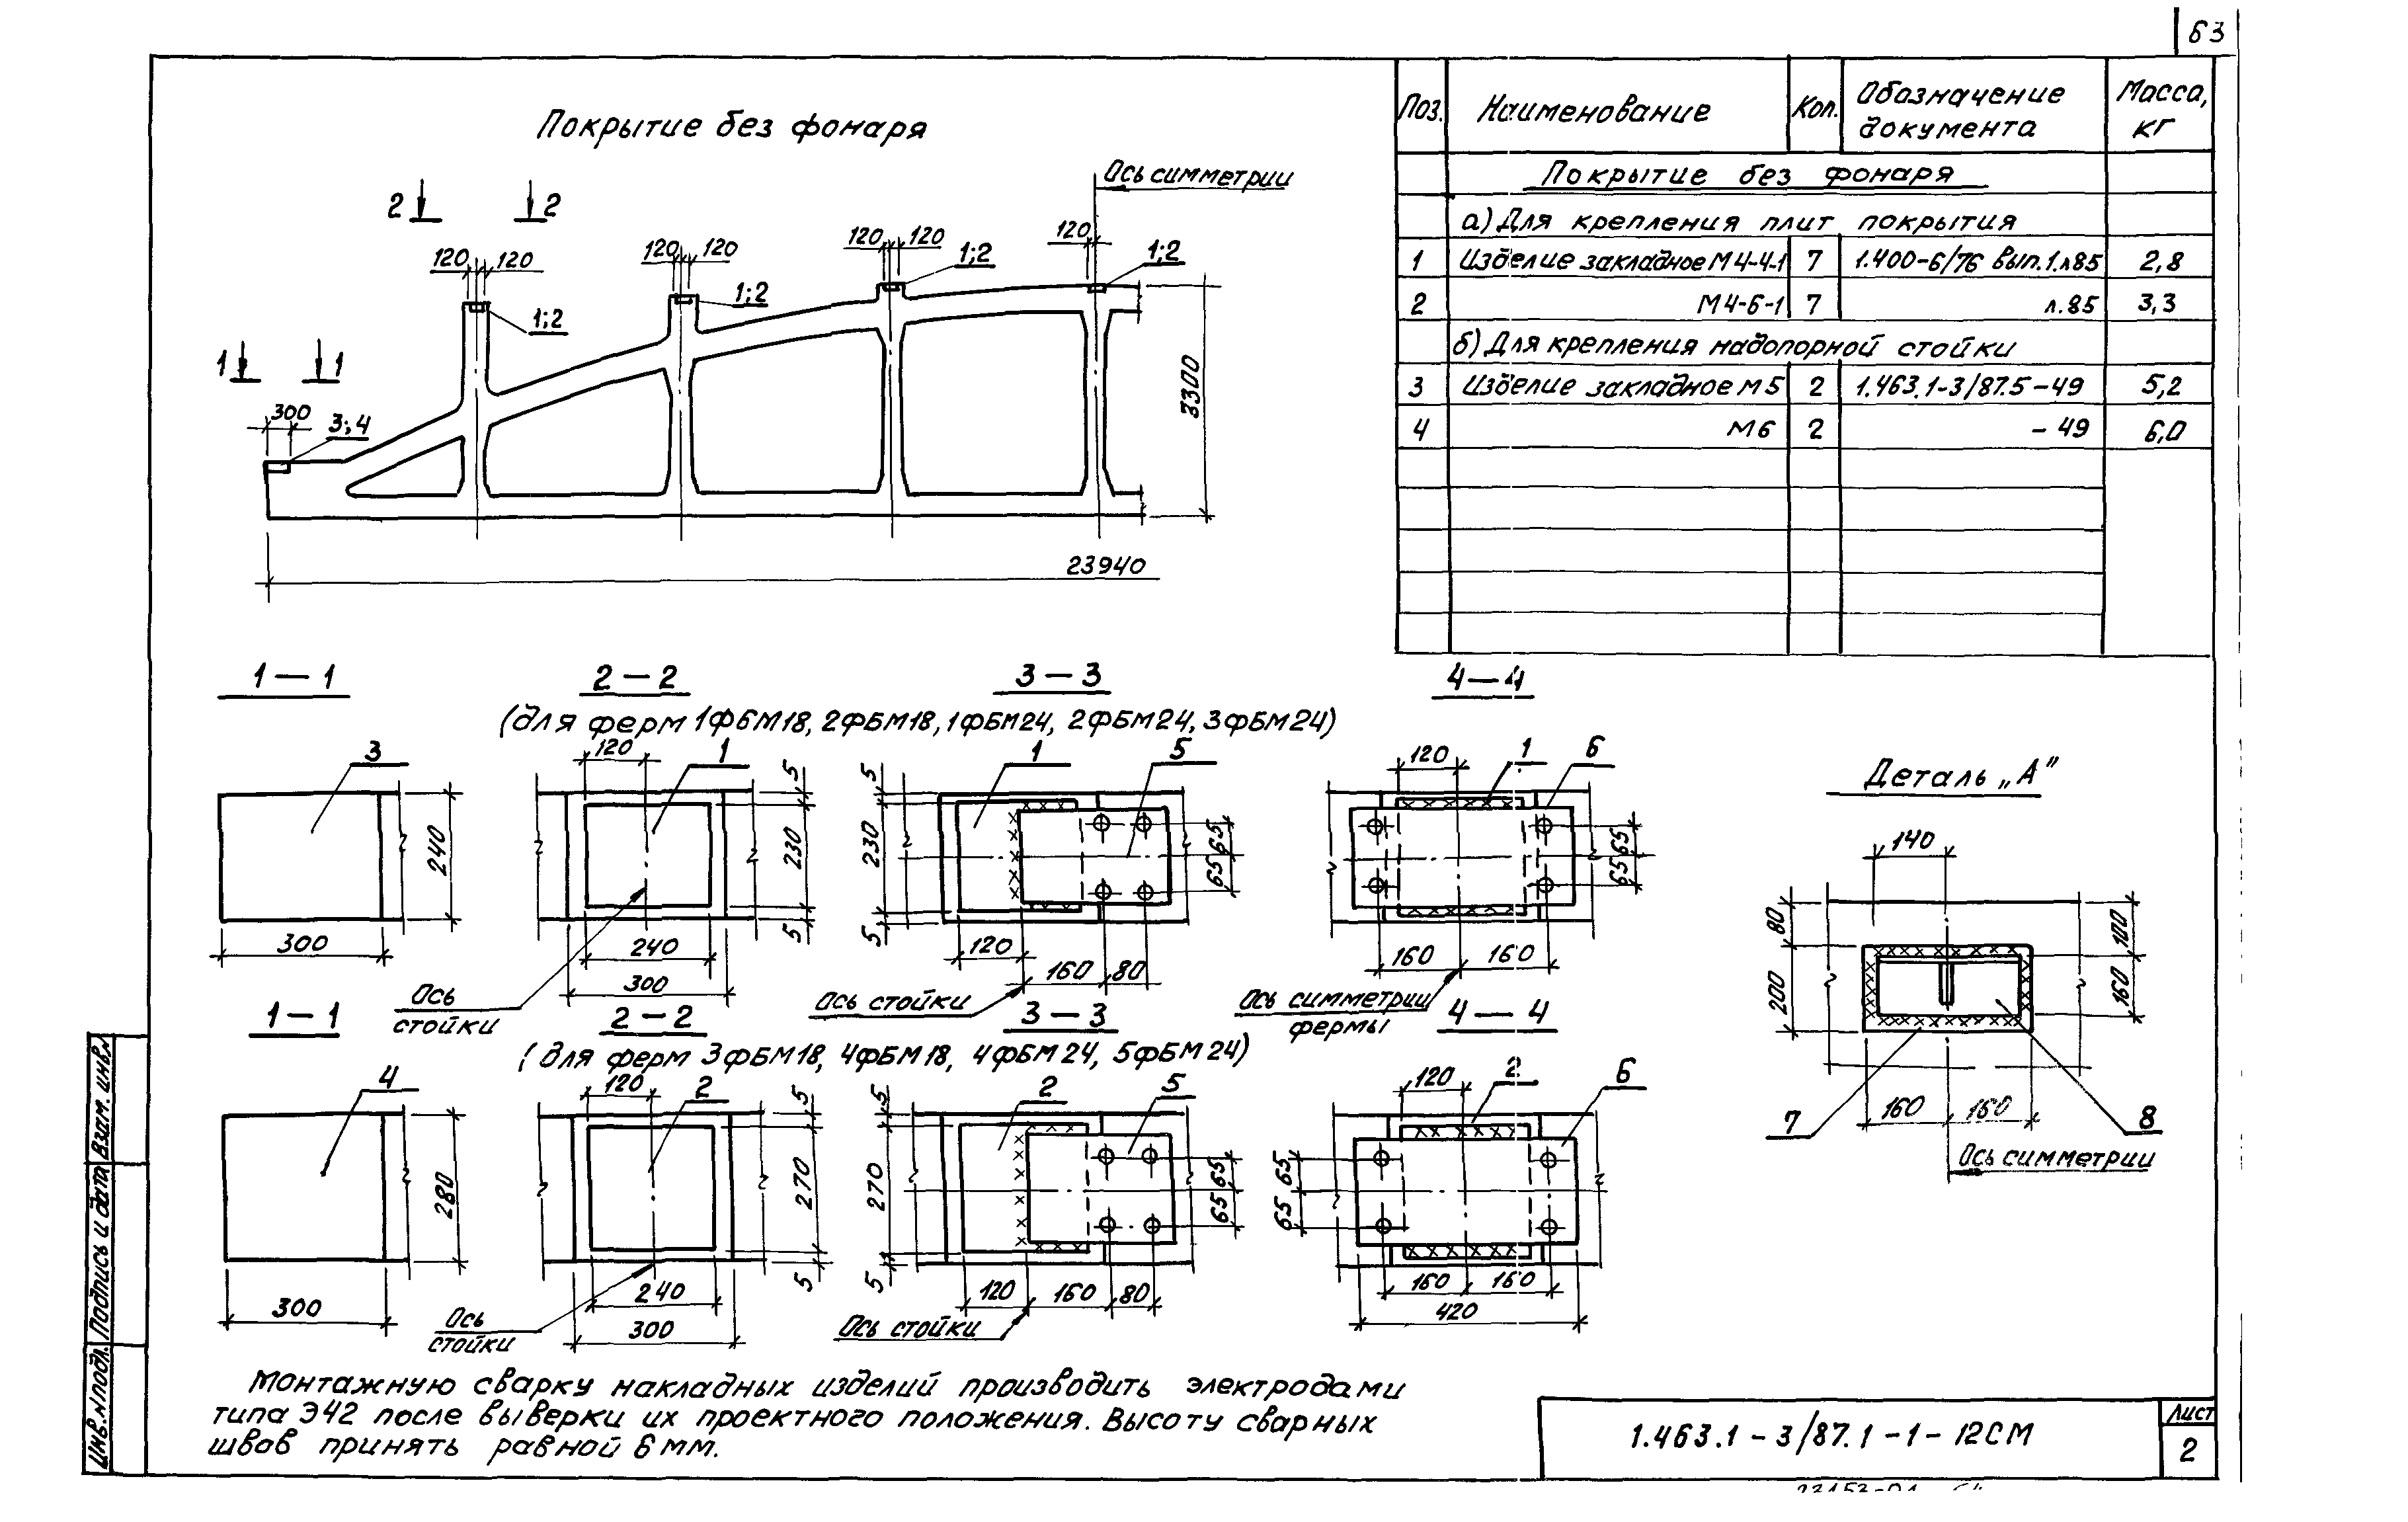 63
Покрытие без фонаря
Ось симметрии
2 2
120 120
120 120
120 120
120
1;2
1;2
1;2
1;2
1 1
300
3;4
3300
23940
Поз. Наименование Кол. Обозначение документа Масса, кг
Покрытие без фонаря
а) Для крепления плит покрытия
1 Изделие закладное М4-4-1 7 1.400-6/76 вып.1.л85 2,8
2 М4-6-1 7 л.85 3,3
б) Для крепления надопорной стойки
3 Изделие закладное М5 2 1.463.1-3/87.5-49 5,2
4 М6 2 -49 6,0
1—1 2—2 3—3 4—4
(для ферм 1ФБМ18, 2ФБМ18, 1ФБМ24, 2ФБМ24, 3ФБМ24)
3
240
300
120
1
5
230
5
240
300
Ось
стойки
5
230
5
1
5
65
65
120
160 80
Ось стойки
120
1
6
65
65
160 160
Ось симметрии
фермы
Деталь „А"
140
80
200
100
160
160 160
7
8
Ось симметрии
1—1 2—2 3—3 4—4
(для ферм 3ФБМ18, 4ФБМ18, 4ФБМ24, 5ФБМ24)
4
280
300
120
2
5
270
5
240
300
Ось
стойки
5
270
5
2
5
65
65
120 160 80
Ось стойки
120
2
6
65
65
160 160
420
Монтажную сварку накладных изделий производить электродами
типа Э42 после выверки их проектного положения. Высоту сварных
швов принять равной 6 мм.
1.463.1-3/87.1-1-12СМ
Лист
2
Инв.N подл. Подпись и дата Взам. инв.N